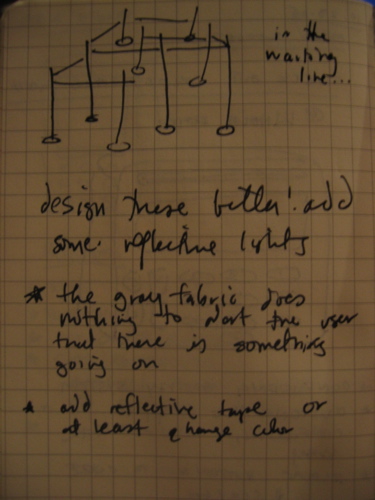 in the
waiting
line...
design these better! add
some reflective lights
* the gray fabric does
nothing to alert the user
that there is something
going on
* add reflective tape or
at least change color